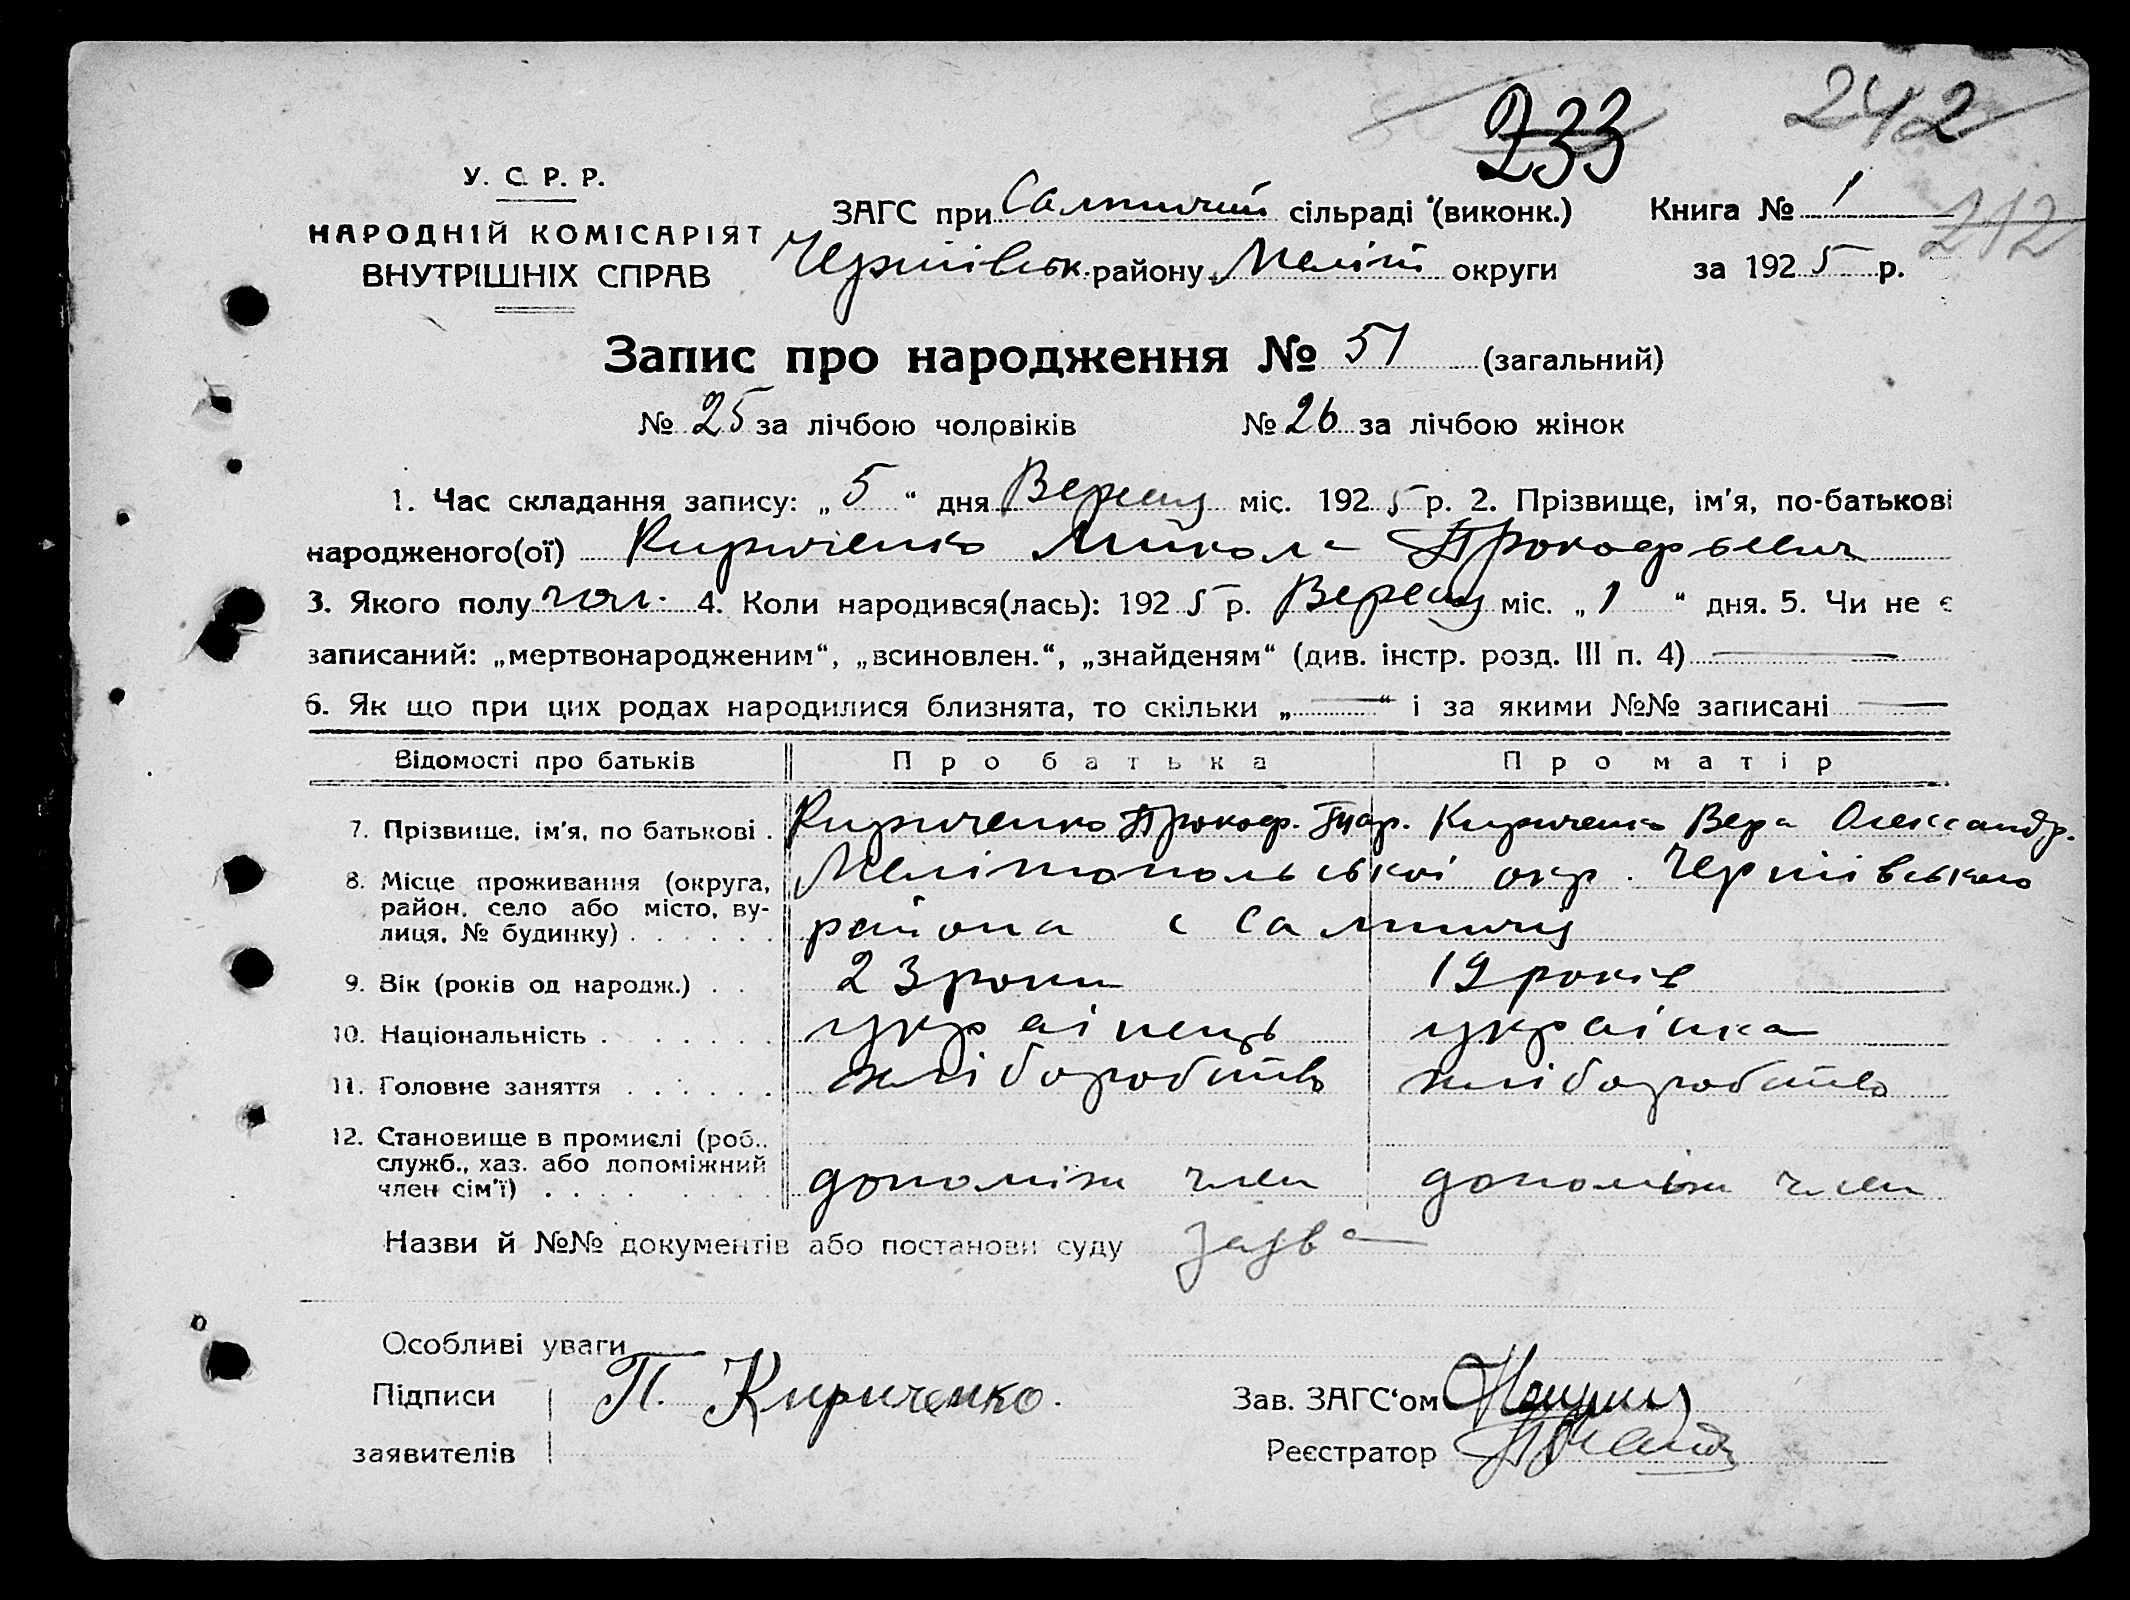 233
242
У. С. Р. Р.
НАРОДНІЙ КОМІСАРІЯТ
ВНУТРІШНІХ СПРАВ
ЗАГС при сільраді (виконк.) Книга № 1
212
Чернівськ. району Меліт округи за 1925 р.
Запис про народження № 51 (загальний)
№ 25 за лічбою чоловіків № 26 за лічбою жінок
1. Час складання запису: „5“ дня Вересц міс. 1925 р. 2. Прізвище, ім'я, по-батькові
народженого(ої) Кириченко Микола Прокофьевич
3. Якого полу чол. 4. Коли народився(лась): 1925 р. Вересц міс. „1“ дня. 5. Чи не є
записаний: „мертвонародженим“, „всиновлен.“, „знайденям“ (див. інстр. розд. III п. 4) —
6. Як що при цих родах народилися близнята, то скільки „—“ і за якими №№ записані —
Відомості про батьків Про батька Про матір
7. Прізвище, ім'я, по батькові . Кириченко Прокоф. Кириченко Вера Олександр.
8. Місце проживання (округа, район, село або місто, вулиця, № будинку) . . . . . . Мелітопольської окр. Чернівського
района с
9. Вік (років од народж.) . . 23 роки 19 років
10. Національність . . . . . . українець українка
11. Головне заняття . . . . . . хліборобство хліборобство
12. Становище в промислі (роб., служб., хаз. або допоміжний член сім'ї) . . . . допоміжн член допоміжн член
Назви й №№ документів або постанови суду заява
Особливі уваги —
Підписи П. Кириченко. Зав. ЗАГС'ом
заявителів Реєстратор